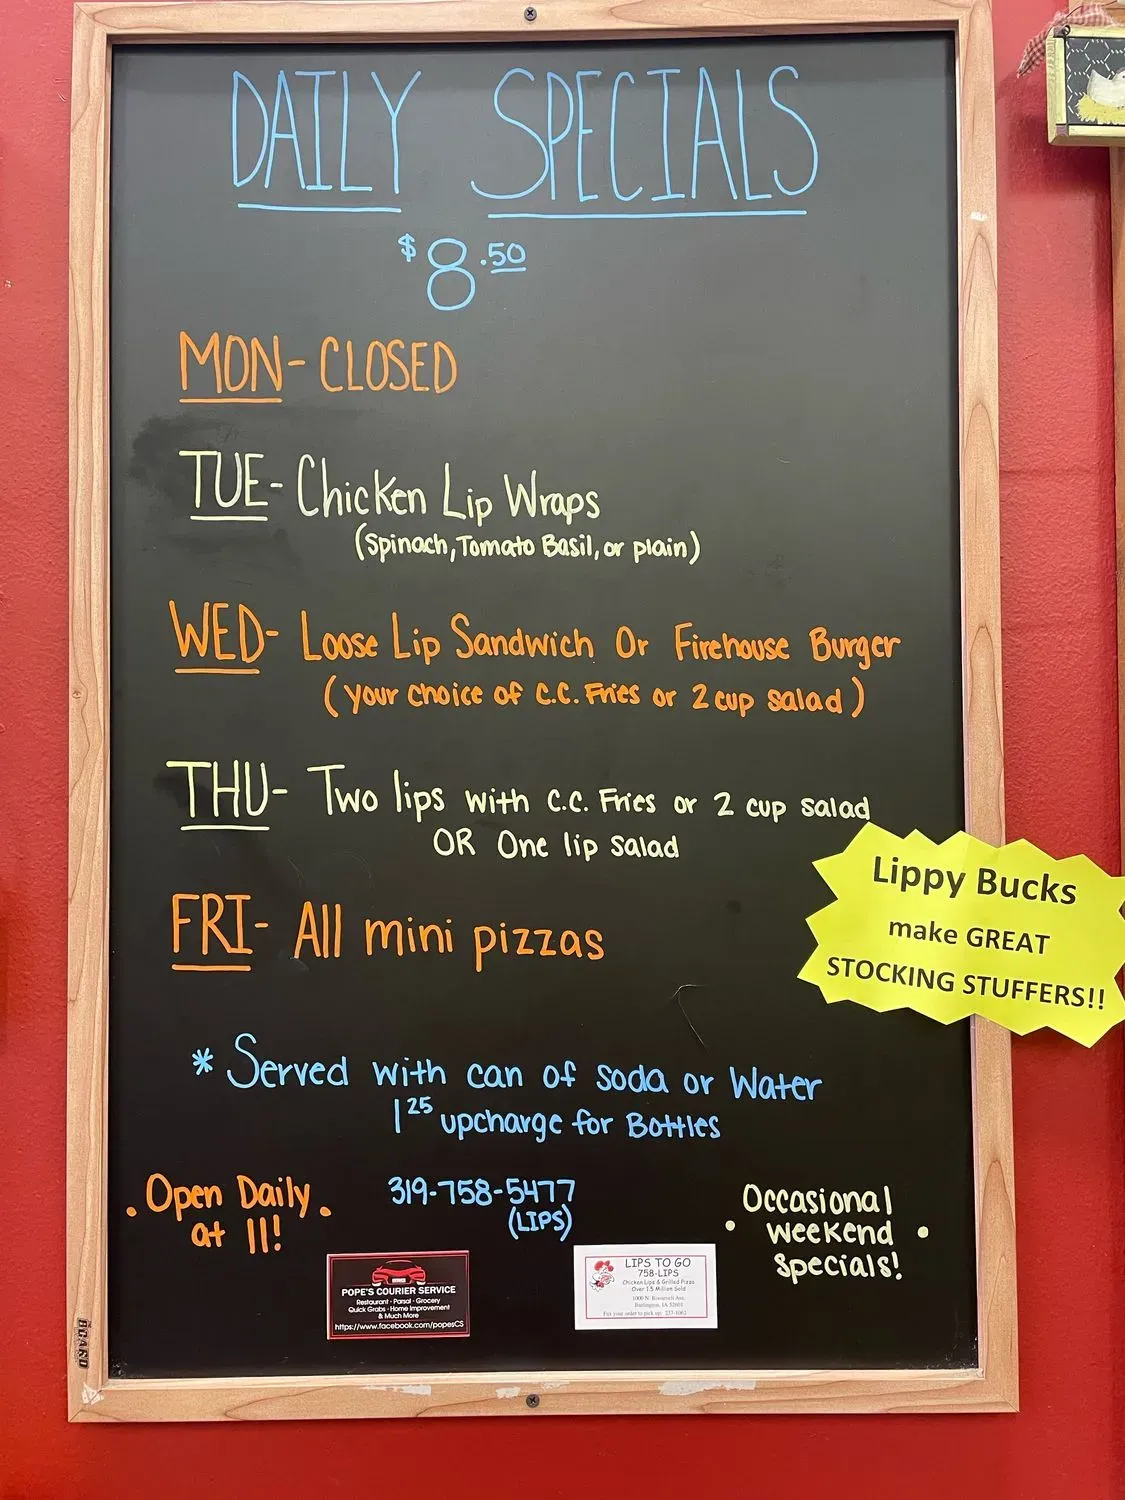 DAILY SPECIALS
$8.50
MON- CLOSED
TUE- Chicken Lip Wraps
(Spinach, Tomato Basil, or plain)
WED- Loose Lip Sandwich Or Firehouse Burger
(your choice of C.C. Fries or 2 cup salad)
THU- Two lips with C.C. Fries or 2 cup salad
OR One lip salad
FRI- All mini pizzas
Lippy Bucks
make GREAT
STOCKING STUFFERS!!
* Served with can of soda or Water
1 25 upcharge for Bottles
Open Daily
at 11!
319-758-5477
(LIPS)
Occasional
weekend
specials!
POPE'S COURIER SERVICE
Restaurant · Parsal · Grocery
Quick Grabs · Home Improvement
& Much More
https://www.facebook.com/popesCS
LIPS TO GO
758-LIPS
Chicken Lips & Grilled Pizza
Over 1.5 Million Sold
1000 N. Roosevelt Ave.
Burlington, IA 52601
Fax your order to pick up:
BOARD